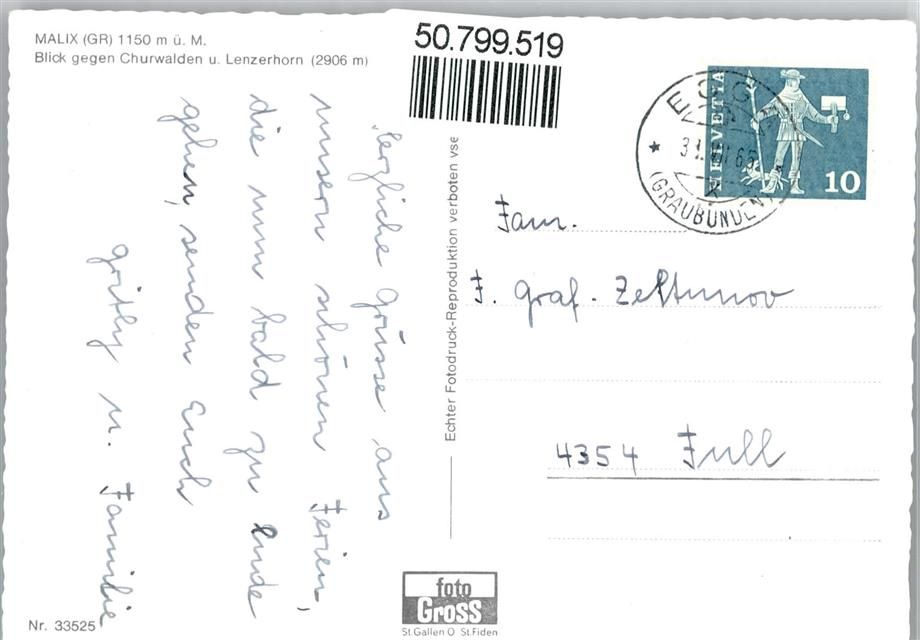 MALIX (GR) 1150 m ü. M.
Blick gegen Churwalden u. Lenzerhorn (2906 m)
50.799.519
HELVETIA
10
(GRAUBÜNDEN)
Herzliche Grüsse aus
unsern schönen Ferien,
die nun bald zu Ende
gehen, senden Euch
Gritly u. Familie
Echter Fotodruck-Reproduktion verboten
Fam.
F. Graf-Zeltunov
4354 Full
foto
Gross
St.Gallen O St.Fiden
Nr. 33525